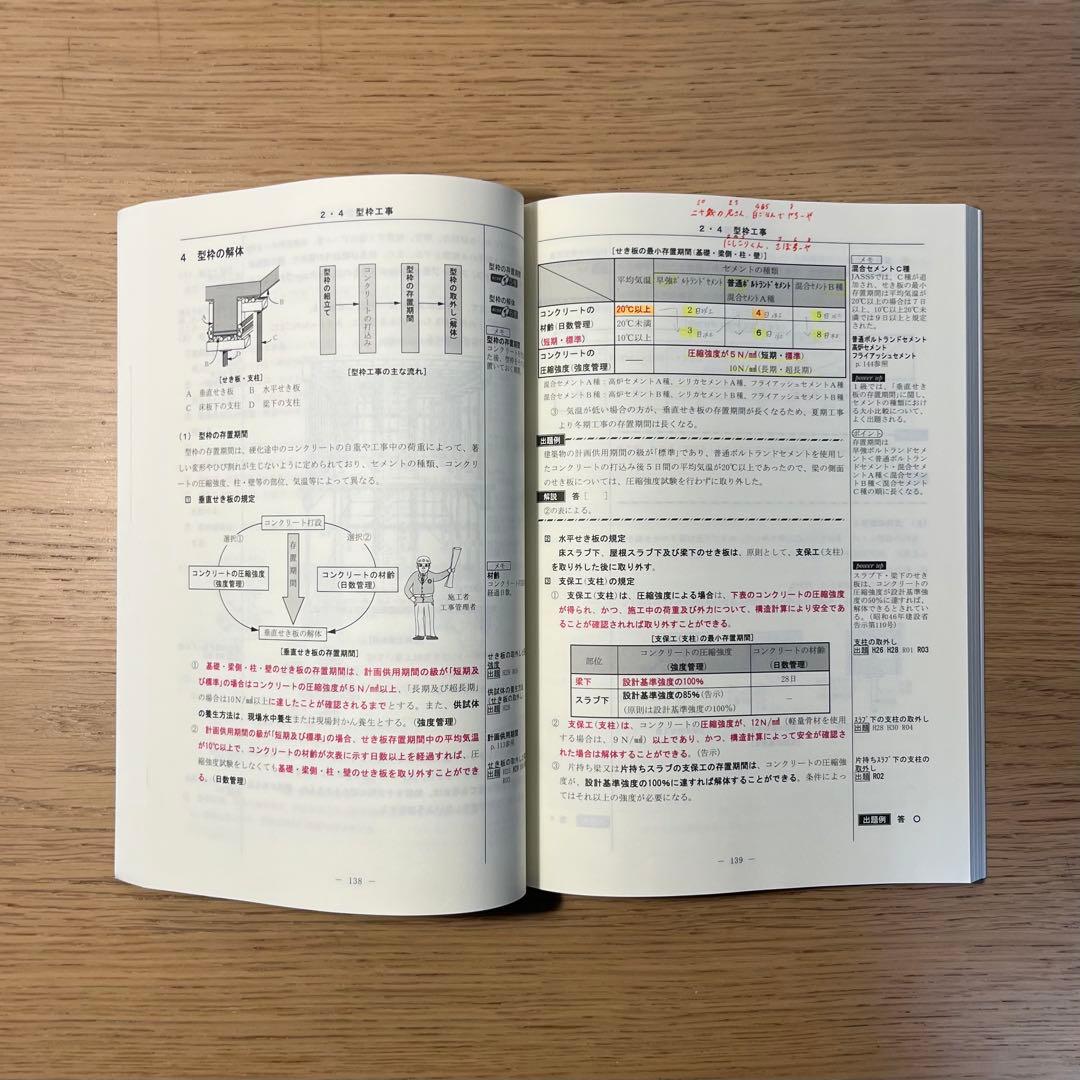 2・4 型枠工事
4 型枠の解体
B
A
C
B
D
[せき板・支柱]
A 垂直せき板 B 水平せき板
C 床板下の支柱 D 梁下の支柱
型枠の組立て
コンクリートの打込み
型枠の存置期間
型枠の取外し(解体)
[型枠工事の主な流れ]
(1) 型枠の存置期間
型枠の存置期間は、硬化途中のコンクリートの自重や工事中の荷重によって、著
しい変形やひび割れが生じないように定められており、セメントの種類、コンクリ
ートの圧縮強度、柱・壁等の部位、気温等によって異なる。
1 垂直せき板の規定
コンクリート打設
選択①
選択②
存置期間
コンクリートの圧縮強度
(強度管理)
コンクリートの材齢
(日数管理)
垂直せき板の解体
施工者
工事管理者
[垂直せき板の存置期間]
① 基礎・梁側・柱・壁のせき板の存置期間は、計画供用期間の級が「短期及
び標準」の場合はコンクリートの圧縮強度が5N/㎟以上、「長期及び超長期」
の場合は10N/㎟以上に達したことが確認されるまでとする。また、供試体
の養生方法は、現場水中養生または現場封かん養生とする。(強度管理)
② 計画供用期間の級が「短期及び標準」の場合、せき板存置期間中の平均気温
が10℃以上で、コンクリートの材齢が次表に示す日数以上を経過すれば、圧
縮強度試験をしなくても基礎・梁側・柱・壁のせき板を取り外すことができ
る。(日数管理)
型枠の存置期間
型枠の解体
メモ
型枠の存置期間
メモ
材齢
経過日数。
計画供用期間
p.113参照
― 138 ―
2・4 型枠工事
[せき板の最小存置期間(基礎・梁側・柱・壁)]
セメントの種類
平均気温 早強ポルトランドセメント 普通ポルトランドセメント 混合セメントA種 混合セメントB種
コンクリートの材齢(日数管理)(短期・標準)
20℃以上 2日 4日 5日
20℃未満 10℃以上 3日 6日 8日
コンクリートの圧縮強度(強度管理)
― 圧縮強度が5N/㎟(短期・標準)
10N/㎟(長期・超長期)
混合セメントA種:高炉セメントA種、シリカセメントA種、フライアッシュセメントA種
混合セメントB種:高炉セメントB種、シリカセメントB種、フライアッシュセメントB種
③ 一気温が低い場合の方が、垂直せき板の存置期間が長くなるため、夏期工事
より冬期工事の存置期間は長くなる。
出題例
建築物の計画供用期間の級が「標準」であり、普通ポルトランドセメントを使用し
たコンクリートの打込み後5日間の平均気温が20℃以上であったので、梁の側面
のせき板については、圧縮強度試験を行わずに取り外した。
解説 答[ ]
②の表による。
2 水平せき板の規定
床スラブ下、屋根スラブ下及び梁下のせき板は、原則として、支保工(支柱)
を取り外した後に取り外す。
3 支保工(支柱)の規定
① 支保工(支柱)は、圧縮強度による場合は、下表のコンクリートの圧縮強度
が得られ、かつ、施工中の荷重及び外力について、構造計算により安全であ
ることが確認されれば取り外すことができる。
[支保工(支柱)の最小存置期間]
部位 コンクリートの圧縮強度(強度管理) コンクリートの材齢(日数管理)
梁下 設計基準強度の100% 28日
スラブ下 設計基準強度の85%(告示)
(原則は設計基準強度の100%)
② 支保工(支柱)は、コンクリートの圧縮強度が、12N/㎟(軽量骨材を使用
する場合は、9N/㎟)以上であり、かつ、構造計算によって安全が確認さ
れた場合は解体することができる。(告示)
③ 片持ち梁又は片持ちスラブの支保工の存置期間は、コンクリートの圧縮強
度が、設計基準強度の100%に達すれば解体することができる。条件によっ
てはそれ以上の強度が必要になる。
メモ
混合セメントC種
JASS5では、C種が追
加され、せき板の最小
存置期間は平均気温が
20℃以上の場合は7日
以上、10℃以上20℃未
満では9日以上と規定
された。
普通ポルトランドセメント
高炉セメント
フライアッシュセメント
p.144参照
power up
1級では、「垂直せき
板の存置期間」に関し、
セメントの種類におけ
る大小比較について、
よく出題される。
ポイント
存置期間は
早強ポルトランドセメ
ント<普通ポルトラン
ドセメント・混合セメ
ントA種<混合セメン
トB種<混合セメント
C種の順に長くなる。
power up
スラブ下・梁下のせき
板は、コンクリートの
圧縮強度が設計基準強
度の50%に達すれば、
解体できるとされてい
る。(昭和46年建設省
告示第110号)
支柱の取外し
出題 H26 H28 R01 R03
スラブ下の支柱の取外し
出題 H28 H30 R04
片持ちスラブ下の支柱の
取外し
出題 R02
出題例 答 ○
― 139 ―